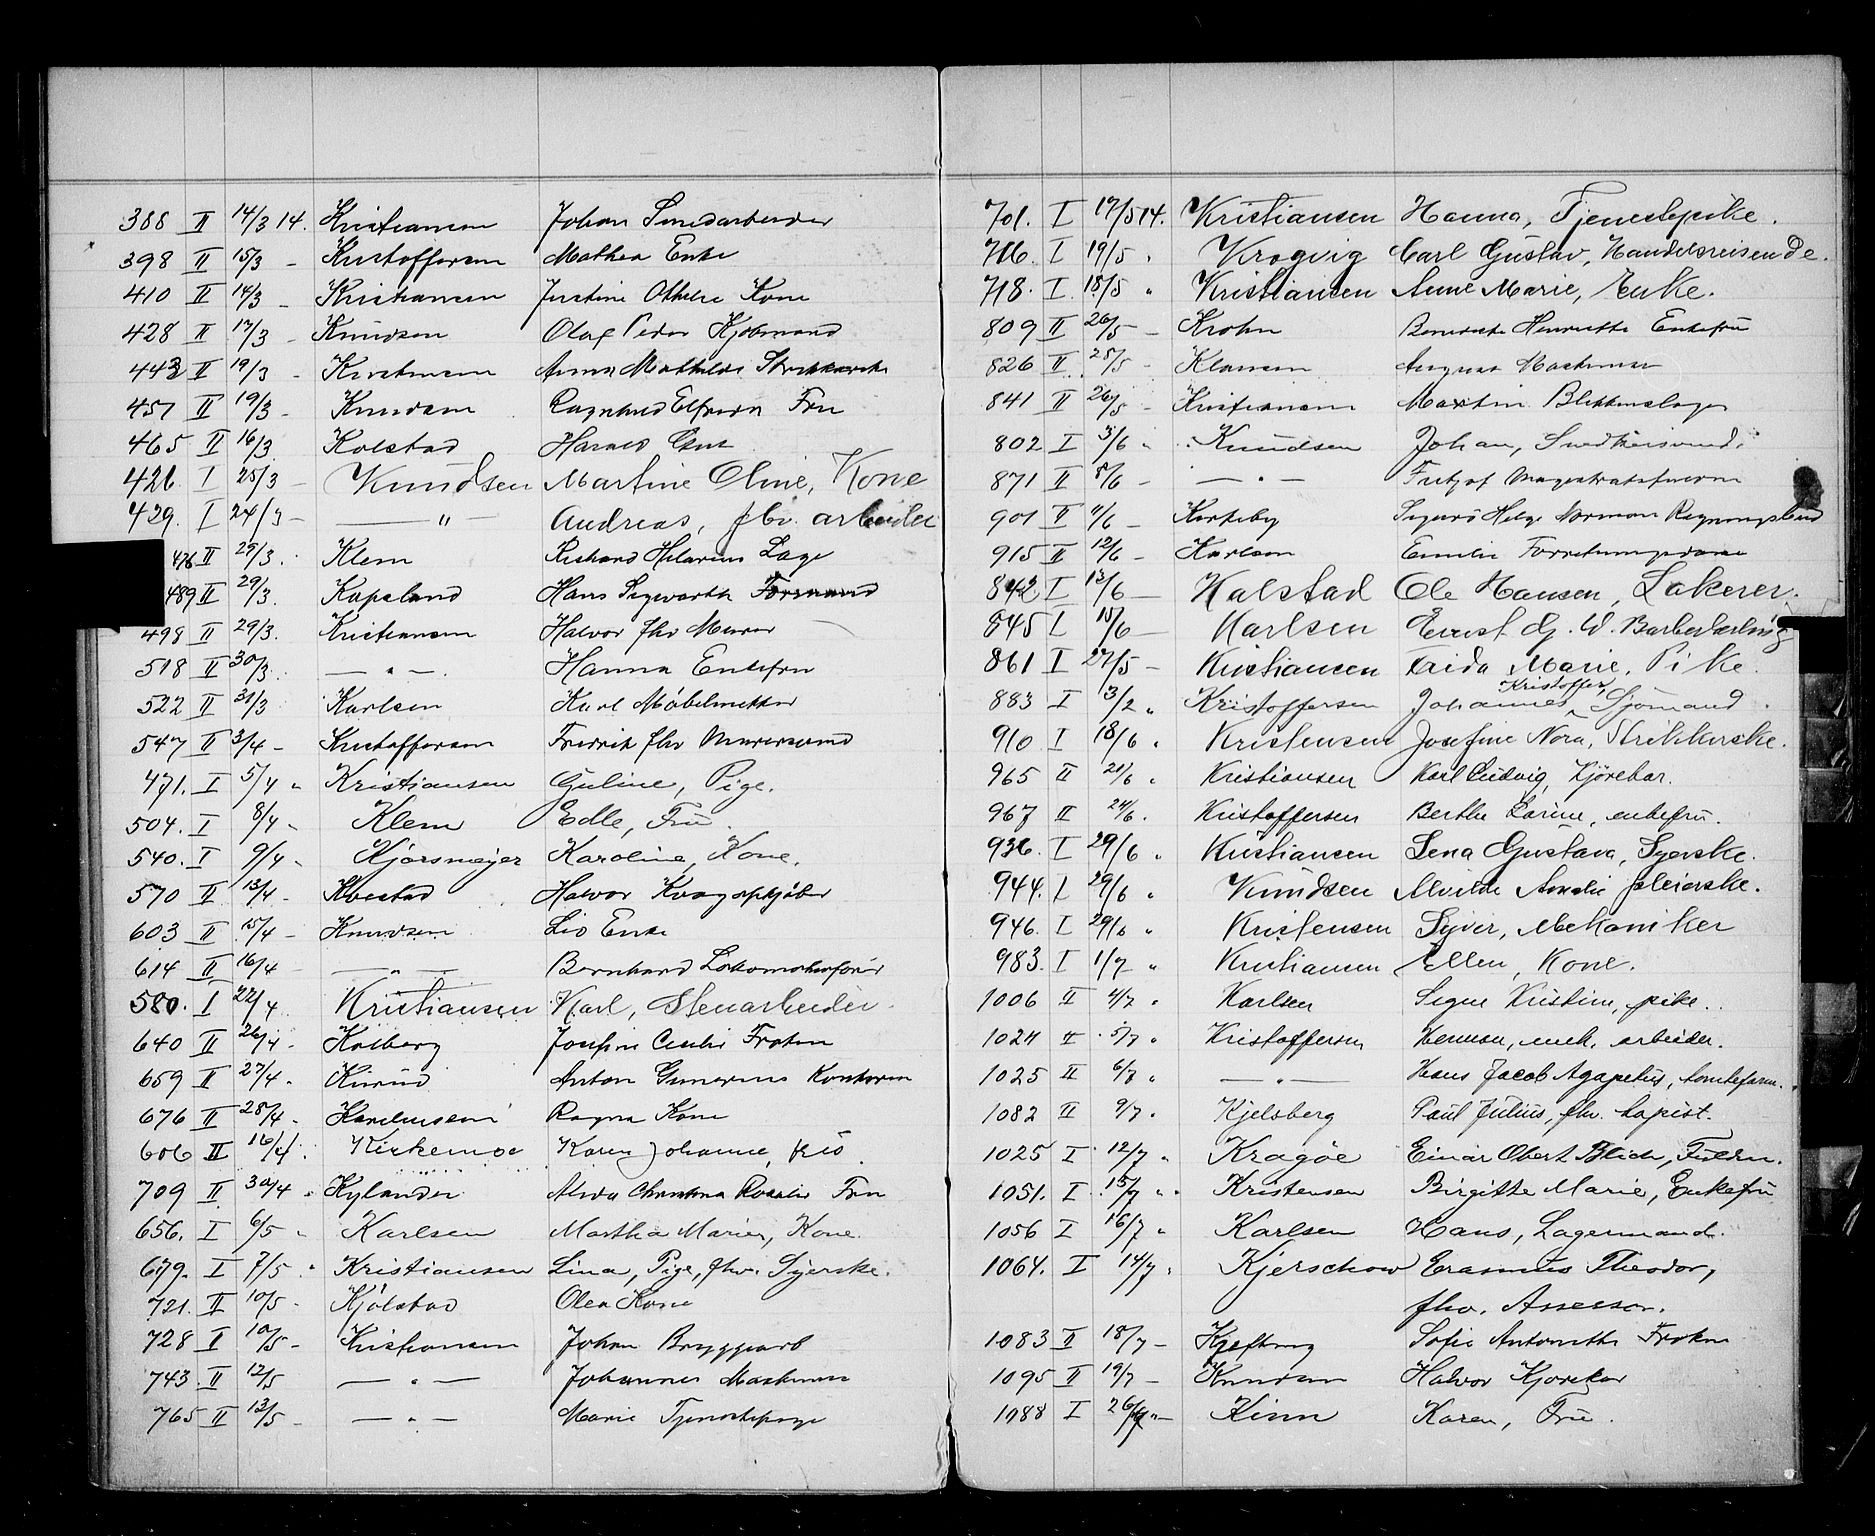 388 II 14/3 14. Kristiansen Johan Smedarbeider
398 II 15/3 - Kristoffersen Mathea Enke
410 II 14/3 - Kristiansen Justine Othelie Kone
428 II 17/3 - Knudsen Olaf Peder Kjøbmand
443 II 19/3 - Kristiansen Anna Mathilde Strikkerske
457 II 19/3 - Knudsen Ragnhild Elfrida Fru
465 II 16/3 Kolstad Harald Gut
426. I 25/3 - Knudsen Martine Oline, Kone
429. I 24/3 - — " — Andreas, fhv. arbeider
476 II 25/3 . Klem Rikhard Hilarius Læge
489 II 29/3. Kopsland Hans Sigwarth Formand
498 II 29/3. Kristiansen Halvor fhv Murer
518 II 30/3. — " — Hanna Enkefru
522 II 31/3 Karlsen Karl Møbelmaker
547 II 3/4 - Kristoffersen Fredrik fhv Murersvend
471. I 5/4 " Kristiansen Guline, Pige.
504. I 8/4 - Klem Edle, Fru.
540. I 9/4 - Kjorsmeyer Karoline, Kone.
570 II 13/4 - Kvestad Halvor Kvægopkjøber
603 II 15/4 - Knudsen Lis Enke
614 II 16/4 — " — Bernhard Lokomotivfører
580. I 22/4 Kristiansen Karl, Stenarbeider
640 II 26/4 - Kolberg Josefine Cecilie Frøken
659 II 27/4 " Kirud Anton Gunerius Kontorm
676 II 28/4 - Ragna Kone
606 II 16/4. Kirkemoe Karen Johanne,
709 II 30/4 " Kylander Alvida Christina Rosalie Fru
656. I 6/5 " Karlsen Martha Marie, Kone.
679. I 7/5 " Kristiansen Lina, Pige, fhv. Syerske.
721. II 10/5 - Kjølstad Olea Kone
728 II 10/5 - Kristiansen Johan Bryggearb
743 II 12/5 — " — Johannes Maskinist
765 II 13/5 - — " — Marie Tjenestepige
701. I 17/5 14. Kristiansen Hanna, Tjenestepike.
716. I 19/5 " Krogvig Carl Gustav, Handelsreisende.
718. I 18/5 " Kristiansen Anne Marie, Enke.
809 II 26/5 - Krohn Benedicte Henriette Enkefru
826 II 25/5 - Klausen August Maskinist
841 II 26/5 - Kristiansen Martin Blikkenslager
802 I 3/6 " Knudsen Johan, Snedkersvend.
871 II 5/6 - — " — Fritjof Magistratsfuldm
901 II 11/6 - Kirkeby Sigurd Helge Norman
915 II 12/6 - Karlsen Emilie Forretningsdame
842. I 13/6 - Kalstad Ole Hansen, Lakerer.
845 I 15/6 - Karlsen Ernst G. W. Barberlærling
861 I 27/5 - Kristiansen Frida Marie, Pike.
883 I 3/2 " Kristoffersen Johannes Kristoffer, Sjømand.
910 I 18/6 " Kristensen Josefine Nora, Strikkerske.
965 II 21/6 " Kristiansen Karl Ludvig, Kjørekar.
967 II 24/6. Kristoffersen Berthe Larine, enkefru.
936. I 29/6 " Kristiansen Lena Gustava, Syerske.
944. I 29/6 " Knudsen Alvilde Amalie, Meierske.
946. I 29/6 " Kristensen Syver, Mekaniker
983. I 1/7 " Kristiansen Ellen, Kone.
1006 II 4/7 " Karlsen Signe Kristine, pike.
1024 II 5/7 " Kristoffersen Herman, mek. arbeider.
1025 II 6/7 " — " — Hans Jacob Agapetus, tomteform.
1082 II 9/7. Kjelsberg Paul Julius, fhv. typist.
1025 I 12/7 " Kragøe Einar Obert Blich, Fuldm.
1051. I 15/7 " Kristensen Birgitte Marie, Enkefru
1056 I 16/7 " Karlsen Hans, Lagermand.
1064. I 14/7 " Kjerschow Erasmus Theodor,
fhv. Assessor.
1083 II 18/7 - Kjeftring Sofie Antonette Frøken
1095 II 19/7 - Knudsen Halvor Kjørekar
1088 I 26/7 " - Kinn Karen, Fru.